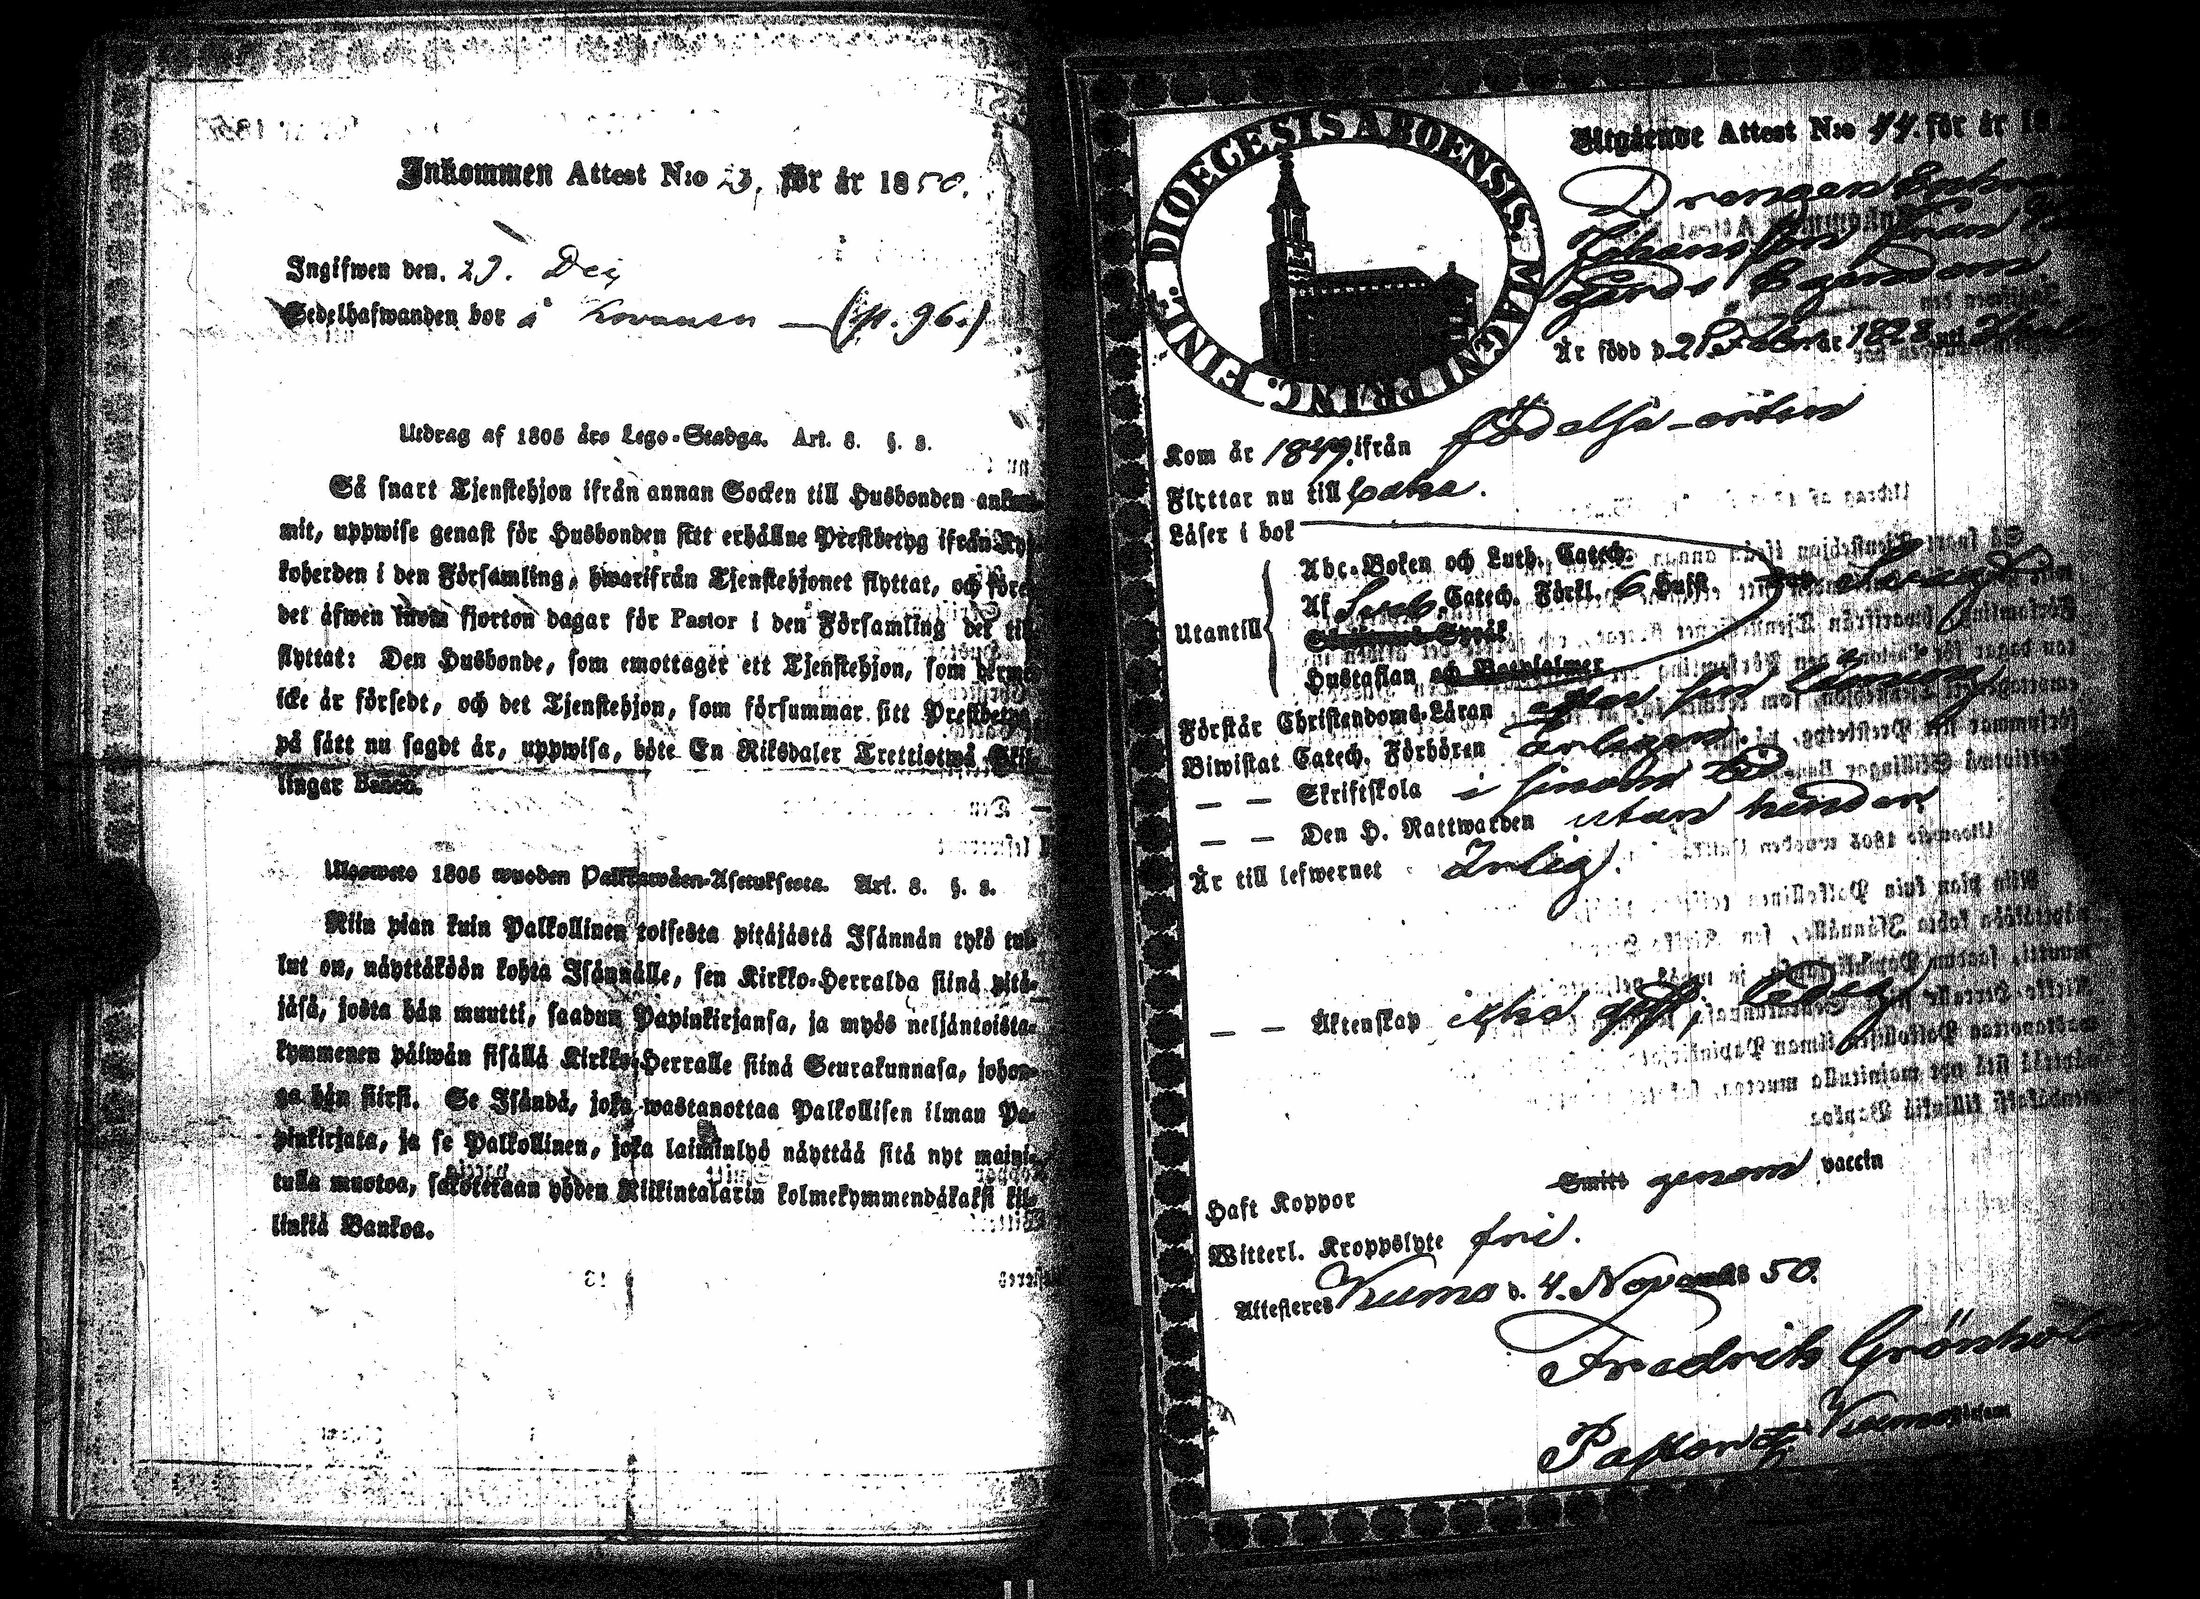 Inkommen Attest N:o 23. för år 1850.
Ingifwen den. 29. Dec
Sedelhafwanden bor å (p. 96.)
Utdrag af 1805 års Lego-Stadga. Art. 8. §. 8.
Så snart Tjenstehjon ifrån annan Socken till Husbonden ankom-
mit, uppwise genast för Husbonden sitt erhållne Prestbetyg ifrån Kyr-
koherden i den Församling, hwarifrån Tjenstehjonet flyttat, och före
det äfwen inom fjorton dagar för Pastor i den Församling det till-
flyttat: Den Husbonde, som emottager ett Tjenstehjon, som dermed
icke är försedt, och det Tjenstehjon, som försummar sitt Prestbetyg,
på sätt nu sagdt är, uppwisa, böte En Riksdaler Trettiotwå Skil-
lingar Banco.
Ulosweto 1805 wuoden Palkkawäen-Asetuksesta. Art. 8. §. 8.
Niin pian kuin Palkollinen toisesta pitäjästä Isännän tykö tul-
lut on, näyttäköön kohta Isännälle, sen Kirkko-Herralda siinä pitä-
jäsä, josta hän muutti, saadun Papinkirjansa, ja myös neljäntoista-
kymmenen päiwän sisällä Kirkko-Herralle siinä Seurakunnasa, johon-
ga hän siirsi. Se Isändä, joka wastanottaa Palkollisen ilman Pa-
pinkirjata, ja se Palkollinen, joka laiminlyö näyttää sitä nyt maini-
tulla muotoa, sakotetaan yhden Riikintalarin kolmekymmendäkaksi kil-
linkiä Bankoa.
DIOECESIS ABOENSIS. MAGNI PRINC. FINL.
Utgående Attest N:o 44. för år 18
Drengen
Johansson från
Gårds Egendom.
Är född d. 2 Febr. år 1828
Kom år 1849. ifrån födelse-orten
Flyttar nu till
Läser i bok
Utantill
Abc-Boken och Luth. Catech.
Af Sveb. Catech. Förkl. 6 Hufst. Svagt
Hustaflan och Botpsalmer
Förstår Christendoms-Läran
Biwistat Catech. Förhören årligen
— — Skriftskola i sinom tid
— — Den H. Nattwarden utan hinder
Är till lefwernet ärlig.
— — Äktenskap icke gift, ledig
Haft Koppor Smitt genom vaccin
Witterl. Kroppslyte fri.
Attesteres Kumo d. 4. November 50.
Fredrik Grönholm
Pastor i Kumo